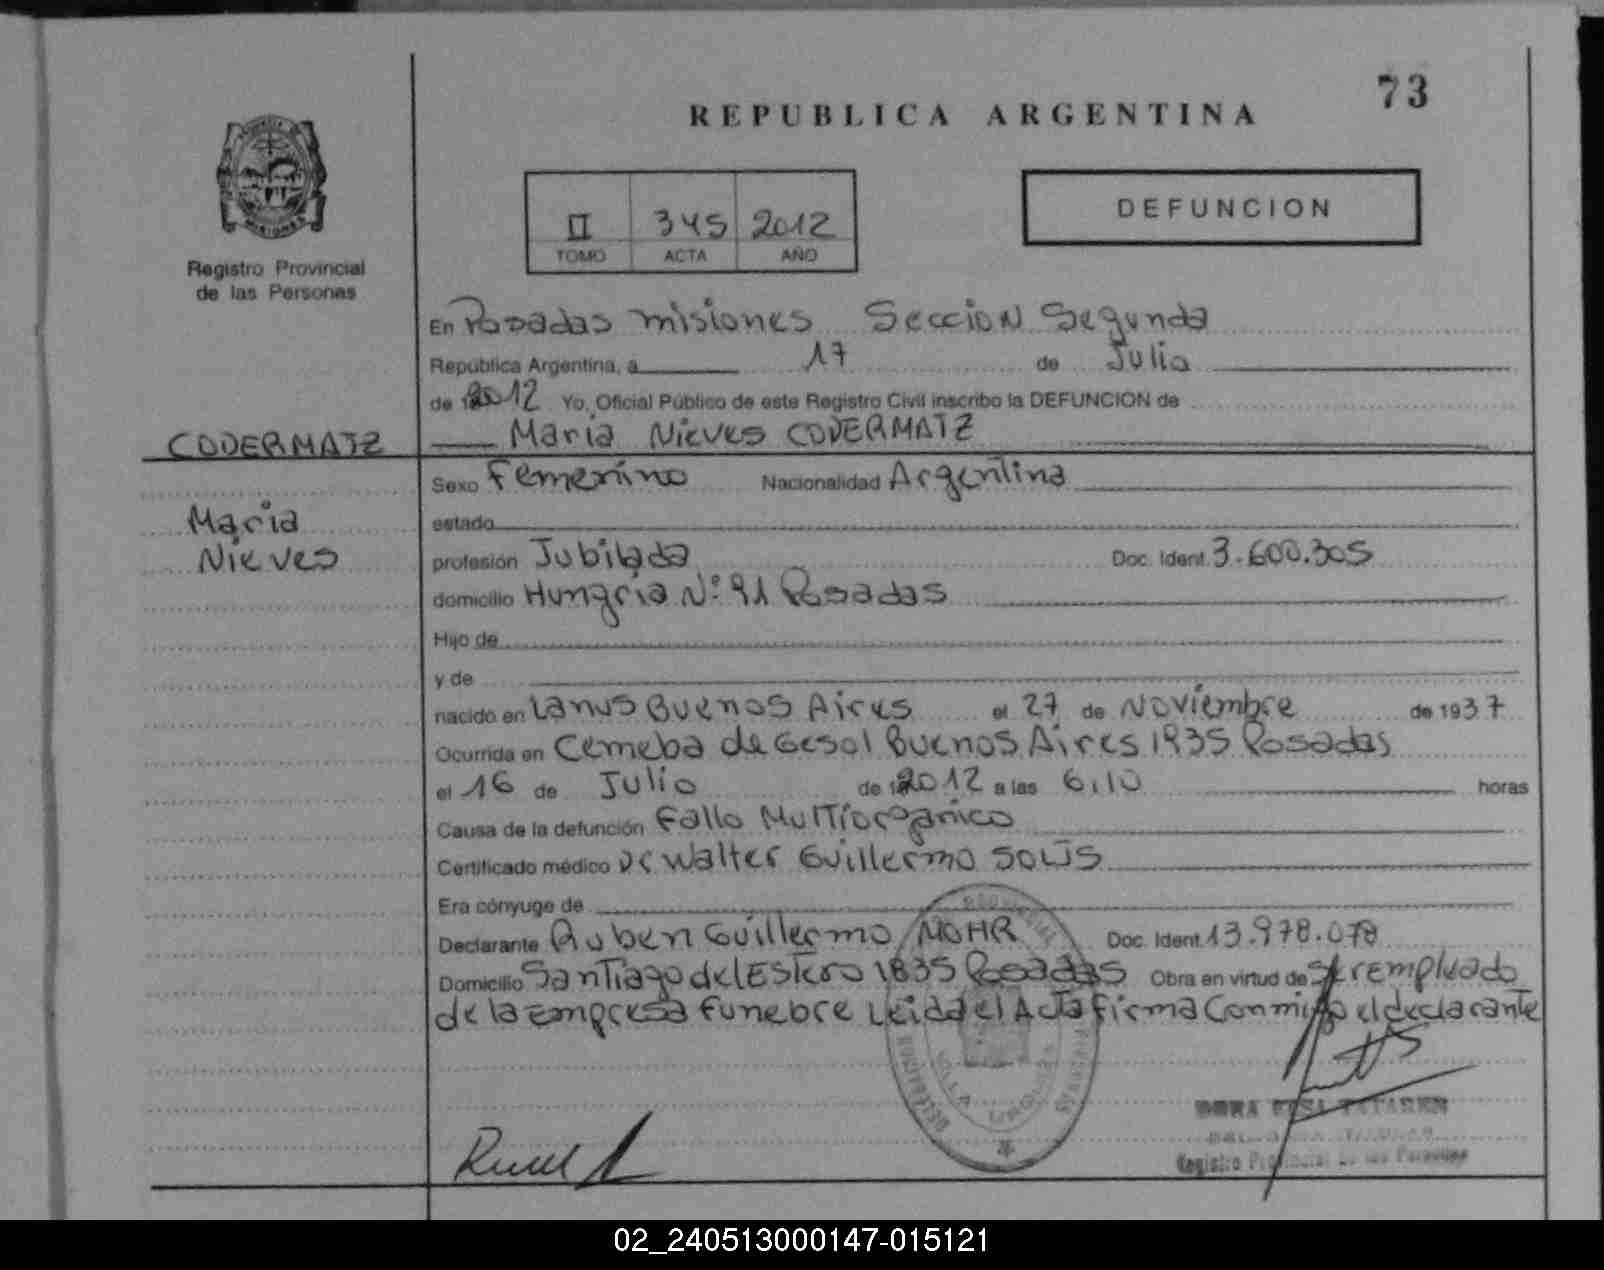 73
REPUBLICA ARGENTINA
DEFUNCION
II 345 2012
TOMO ACTA AÑO
MISIONES
Registro Provincial
de las Personas
En Posadas misiones Seccion Segunda
República Argentina, a 17 de Julio
de 2012 Yo, Oficial Público de este Registro Civil inscribo la DEFUNCION de
CODERMATZ
Maria Nieves CODERMATZ
Maria
Nieves
Sexo Femenino Nacionalidad Argentina
estado
profesión Jubilada Doc. Ident. 3.600.305
domicilio Hungria Nº 91 Posadas
Hijo de
y de
nacido en Lanus Buenos Aires el 27 de Noviembre de 1937
Ocurrida en Cemeba de Gesol Buenos Aires 1935 Posadas
el 16 de Julio de 2012 a las 6,10 horas
Causa de la defunción Fallo Multiorganico
Certificado médico Dr Walter Guillermo SOLIS
Era cónyuge de
Declarante Ruben Guillermo MOHR Doc. Ident. 13.978.078
Domicilio Santiago del Estero 1835 Posadas Obra en virtud de Ser empleado
de la Empresa Funebre Leida el Acta firma Conmigo el declarante
VILLA URQUIZA
Registro Provincial de las Personas
02_240513000147-015121